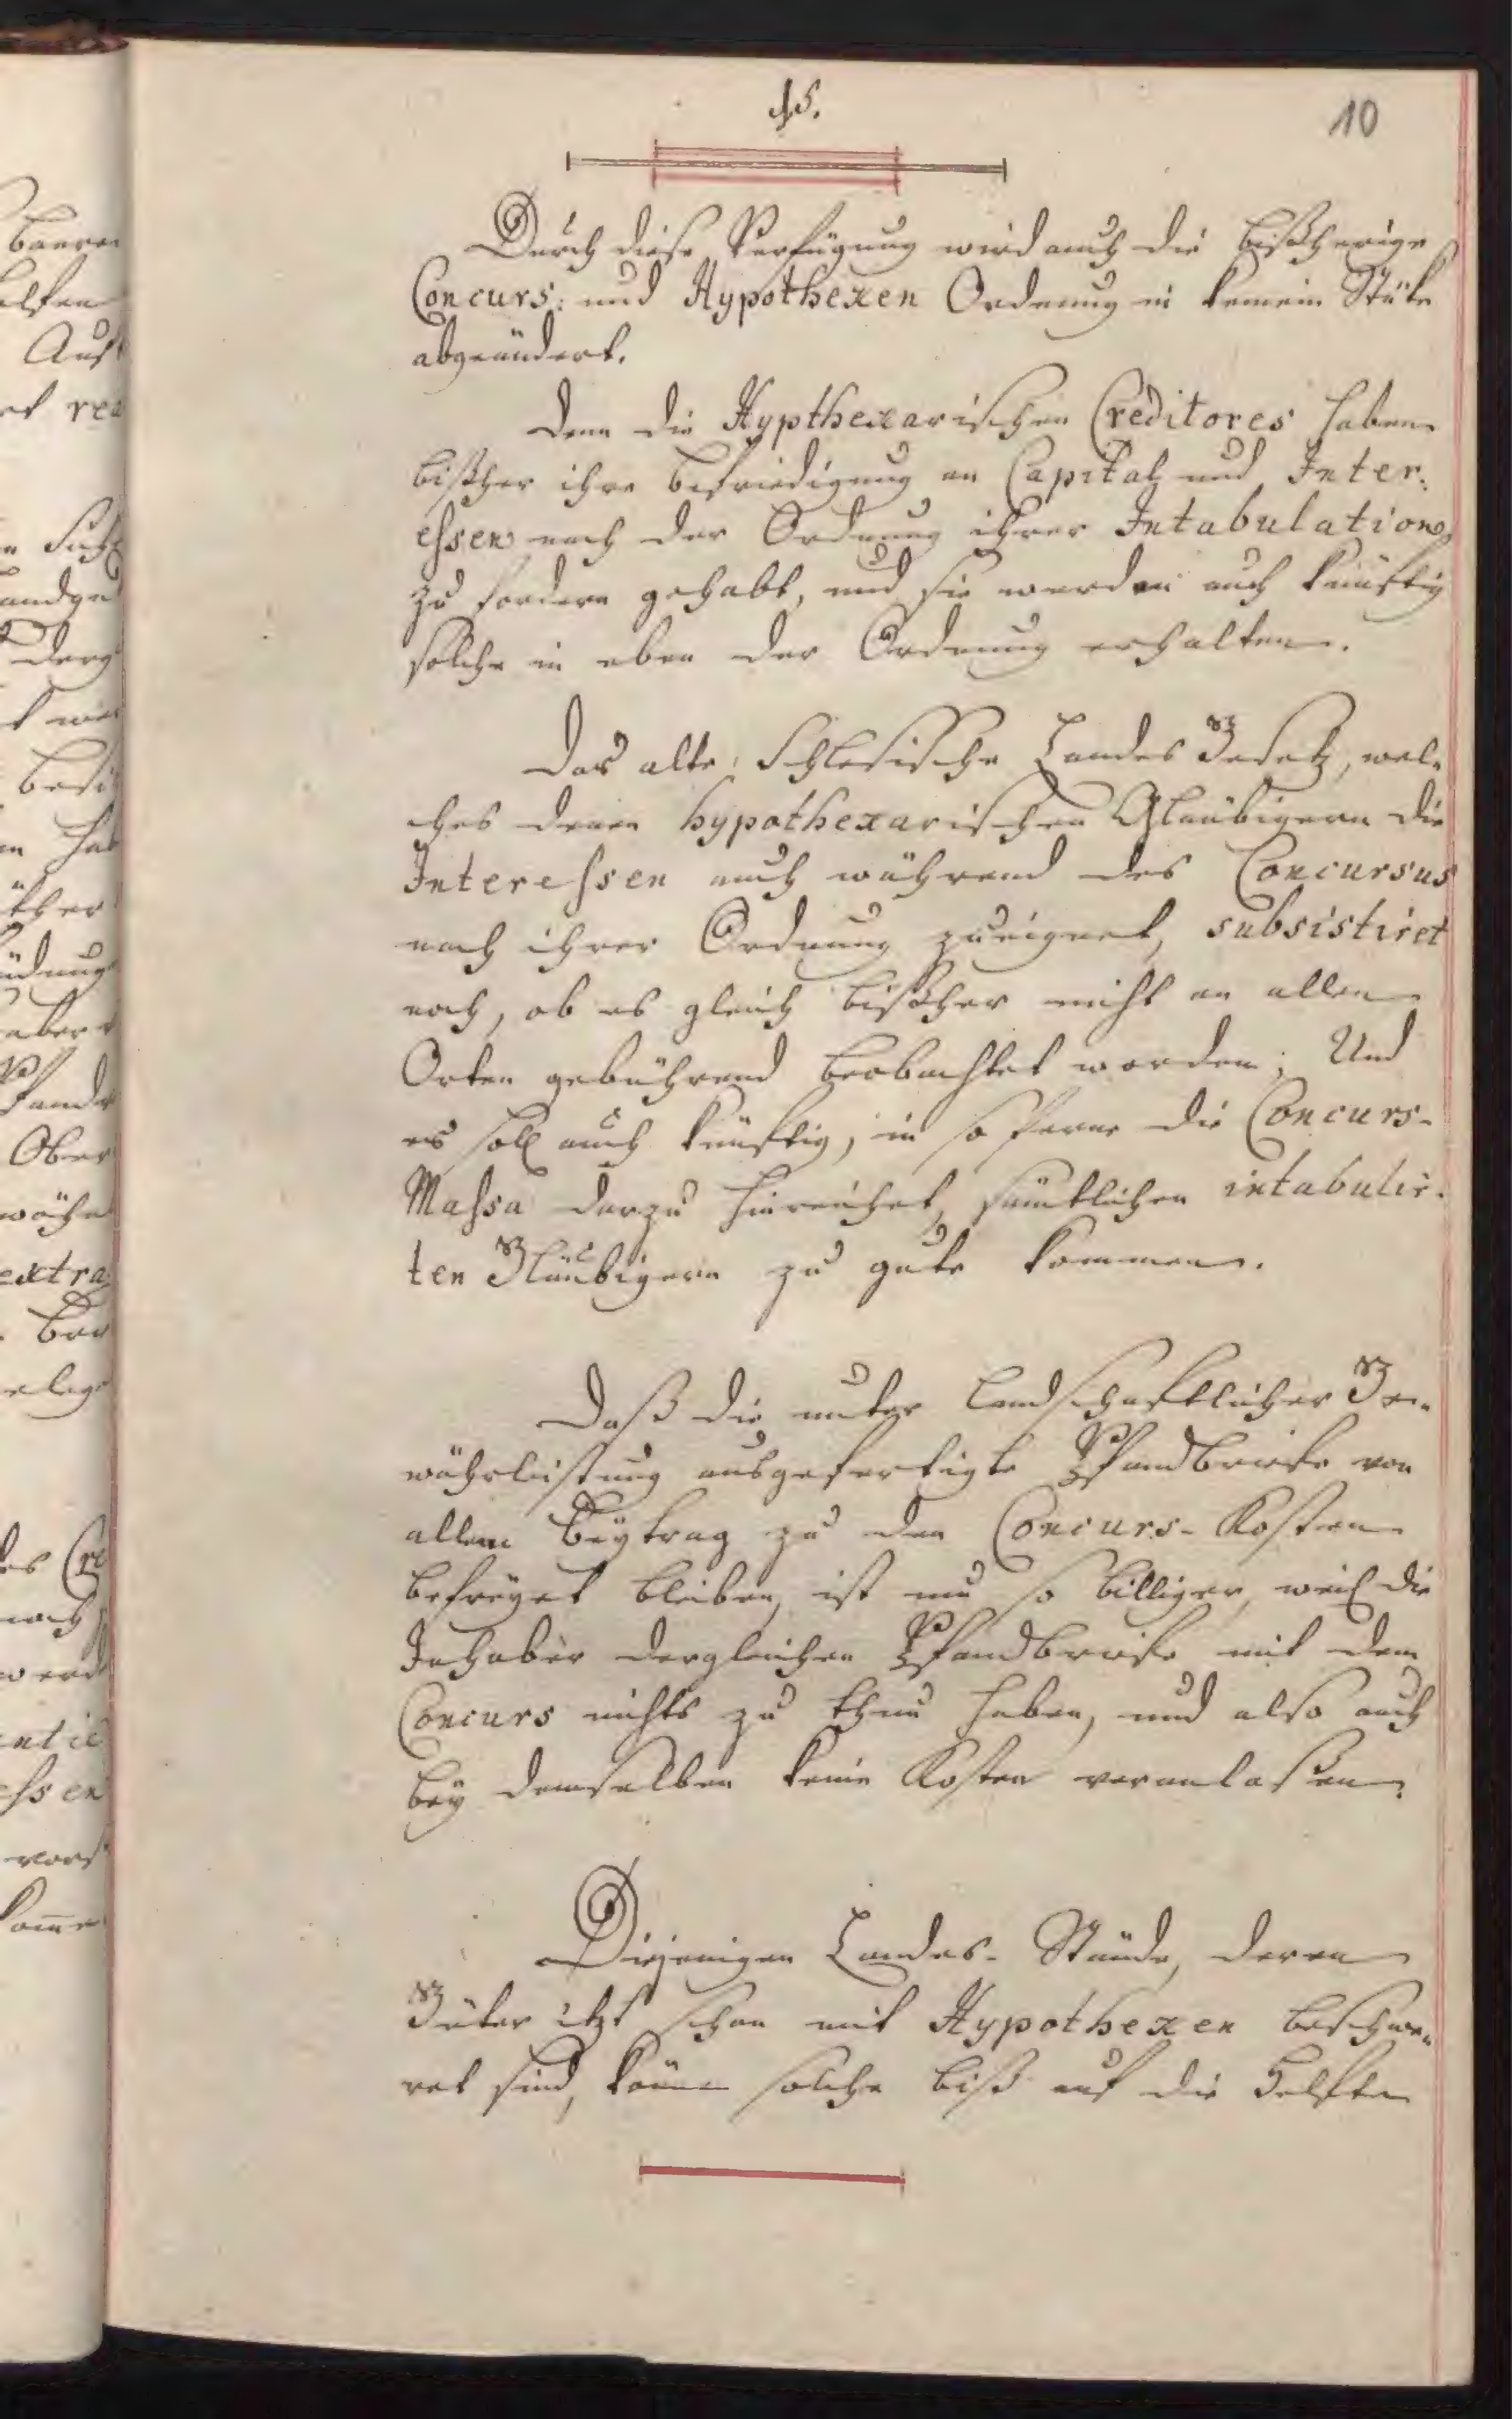 15.
10
Durch diese Verfügung wird auch die bißherige
Concurs: und Hypothexen Ordnung in keinem Stüke
abgeändert.
Denn die Hypthexarischen Creditores haben
bißher ihre Befriedigung an Capital und Inter:
essen nach der Ordnung ihrer Intabulation
zu fordern gehabt, und sie werden auch künftig
solche in eben der Ordnung erhalten.
Das alte Schlesische Landes Gesetz, wel-
ches denen hypothexarischen Gläubigern die
Interessen auch während des Concursus
nach ihrer Ordnung zueignet, subsistiret
noch, ob es gleich bißher nicht an allen
Orten gebührend beobachtet worden; Und
es soll auch künftig, in so ferne die Concurs-
Massa darzu hinreichet, sämtlichen intabulir-
ten Gläubigern zu gute kommen.
Daß die unter Landschaftlicher Ge-
währleistung ausgefertigte Pfandbriefe von
allem Beytrag zu den Concurs-Kosten
befreyet bleiben, ist um so billiger, weil die
Inhaber dergleichen Pfandbriefe mit dem
Concurs nichts zu thun haben, und also auch
bey demselben keine Kosten veranlaßen.
Diejenigen Landes-Stände, deren
Güter itzt schon mit Hypothexen beschwe-
ret sind, könen solche biß auf die Helfte